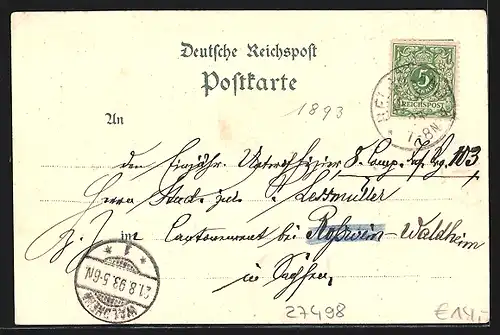 Deutsche Reichspost
Postkarte
5
REICHSPOST
7-8N
1893
An
den Einjähr. Unteroffizier 8. Comp. 103
Herrn stud. jur. Lessmüller
z. Z. im Cantonnement bei Roßwein-Waldheim
in Sachsen
1
21.8.93.5-6N.
WALDHEIM
27498
€14,-